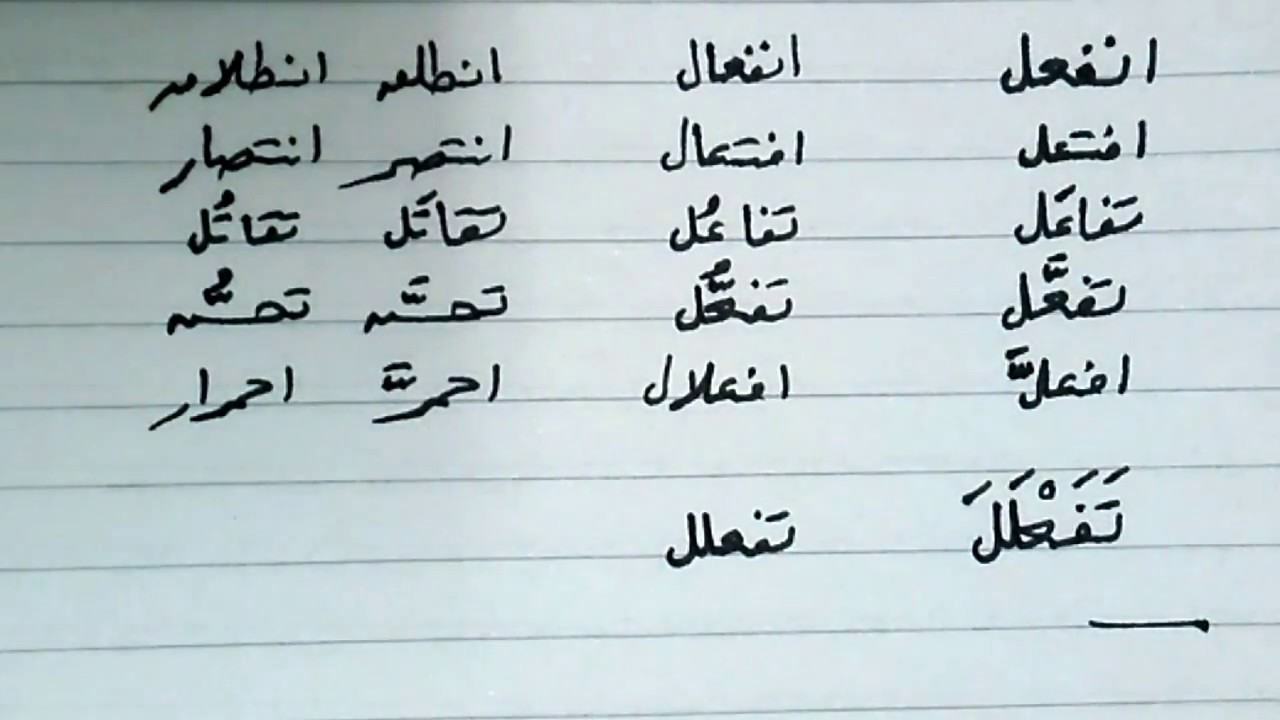 انفعل انفعال انطلق انطلاق
افتعل افتعال انتصر انتصار
تفاعَل تفاعُل تقاتَل تقاتُل
تفعَّل تفعُّل تحسَّن تحسُّن
افعلَّ افعلال احمرَّ احمرار
تَفَعْلَلَ تفعلل